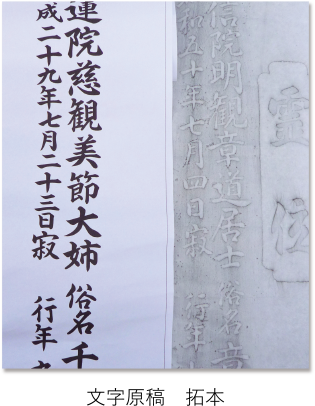 靈位
信院明観章道居士 俗名 章
和五十年七月四日寂 行年
蓮院慈観美節大姉 俗名 千
成二十九年七月二十三日寂 行年
文字原稿　拓本